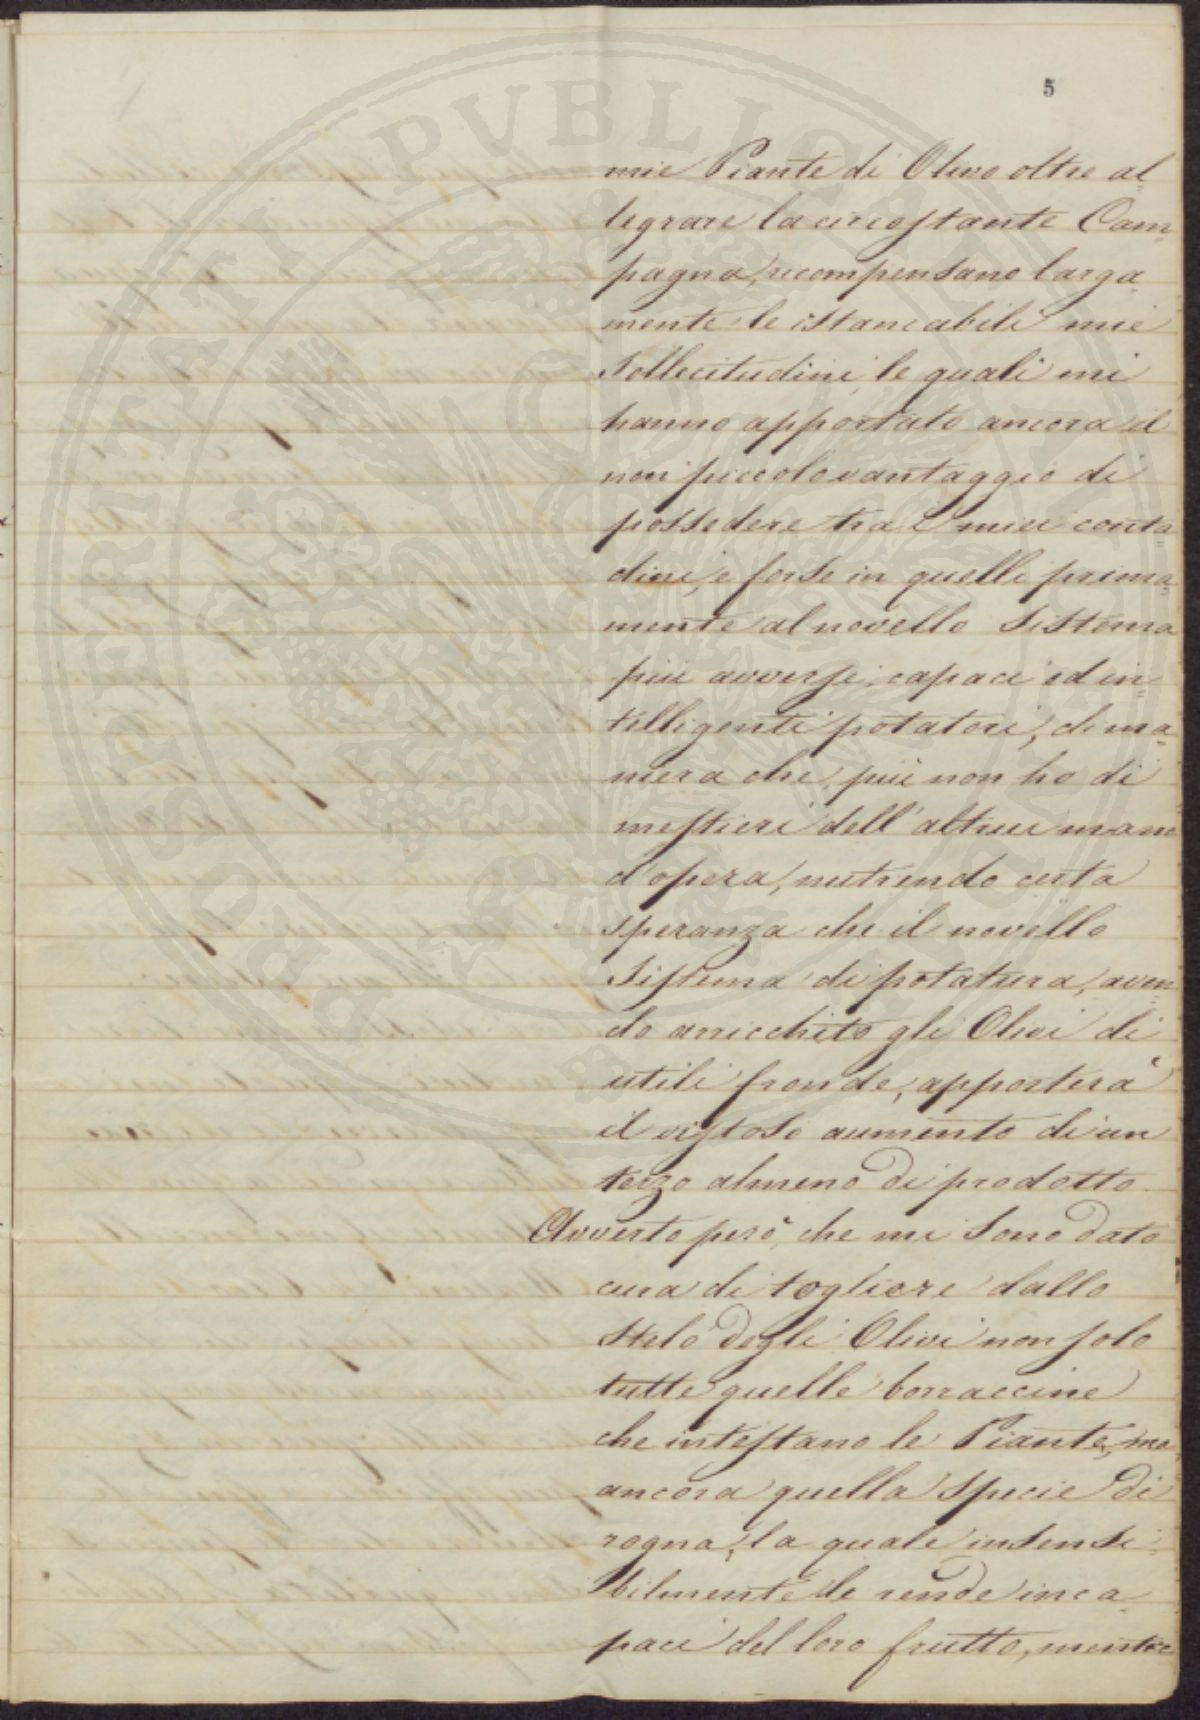 5
mie Piante di Olivo oltre al-
legrare la circostante Cam-
pagna, ricompensano larga-
mente le istancabili mie
Sollecitudini, le quali mi
hanno apportato ancora il
non piccolo vantaggio di
possedere tra i miei conta-
dini, e forse in quelli prima-
mente al novello Sistema
più avversi, capaci ed in-
telligenti potatori, di ma-
niera che più non ho di
mestieri dell'altrui mano
d'opera, nutrendo certa
speranza che il novello
Sistema di potatura, aven-
do arricchito gli Olivi di
utili fronde, apporterà
il vistoso aumento di un
terzo almeno di prodotto.
Avverto però, che mi sono dato
cura di togliere dallo
Stelo degli Olivi non solo
tutte quelle borraccine
che infestano le Piante, ma
ancora quella specie di
rogna, la quale insensi-
bilmente le rende inca-
paci del loro frutto, mentre
PUBLICAE
PROSPERITATI